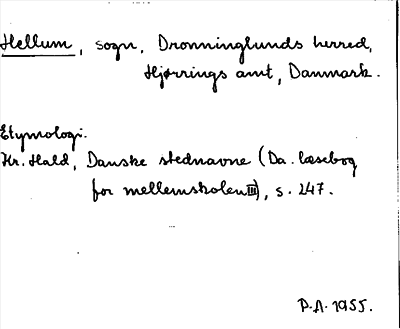 Hellum, sogn, Dronninglunds herred,
Hjørrings amt, Danmark.
Etymologi.
Kr. Hald, Danske stednavne (Da. læsebog
for mellemskolen III), s. 247.
P.A. 1955.